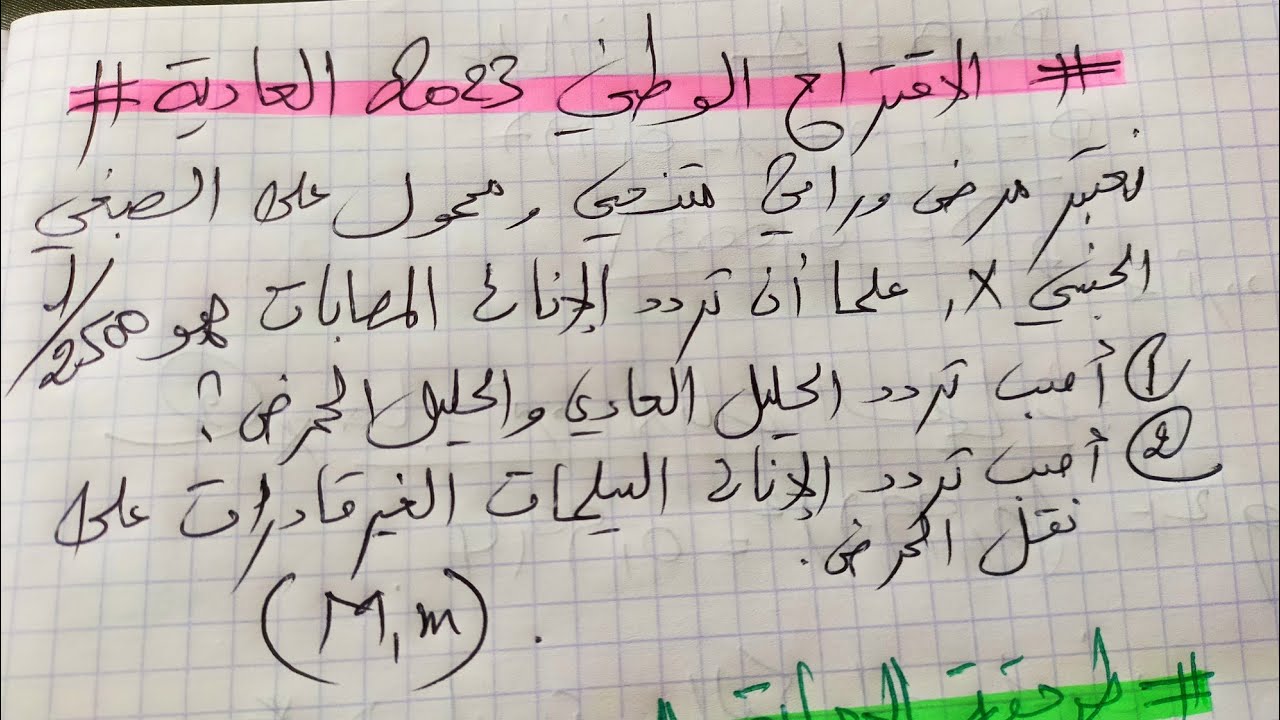 # الاقتراح الوطني 2023 العادية #
نعتبر مرض وراثي متنحي ومحمول على الصبغي
الجنسي X, علما أن تردد الإناث المصابات هو 1/2500
① أحسب تردد الحليل العادي والحليل الممرض؟
② أحسب تردد الإناث السليمات الغير قادرات على
نقل المرض.
(M, m).
# طريقة